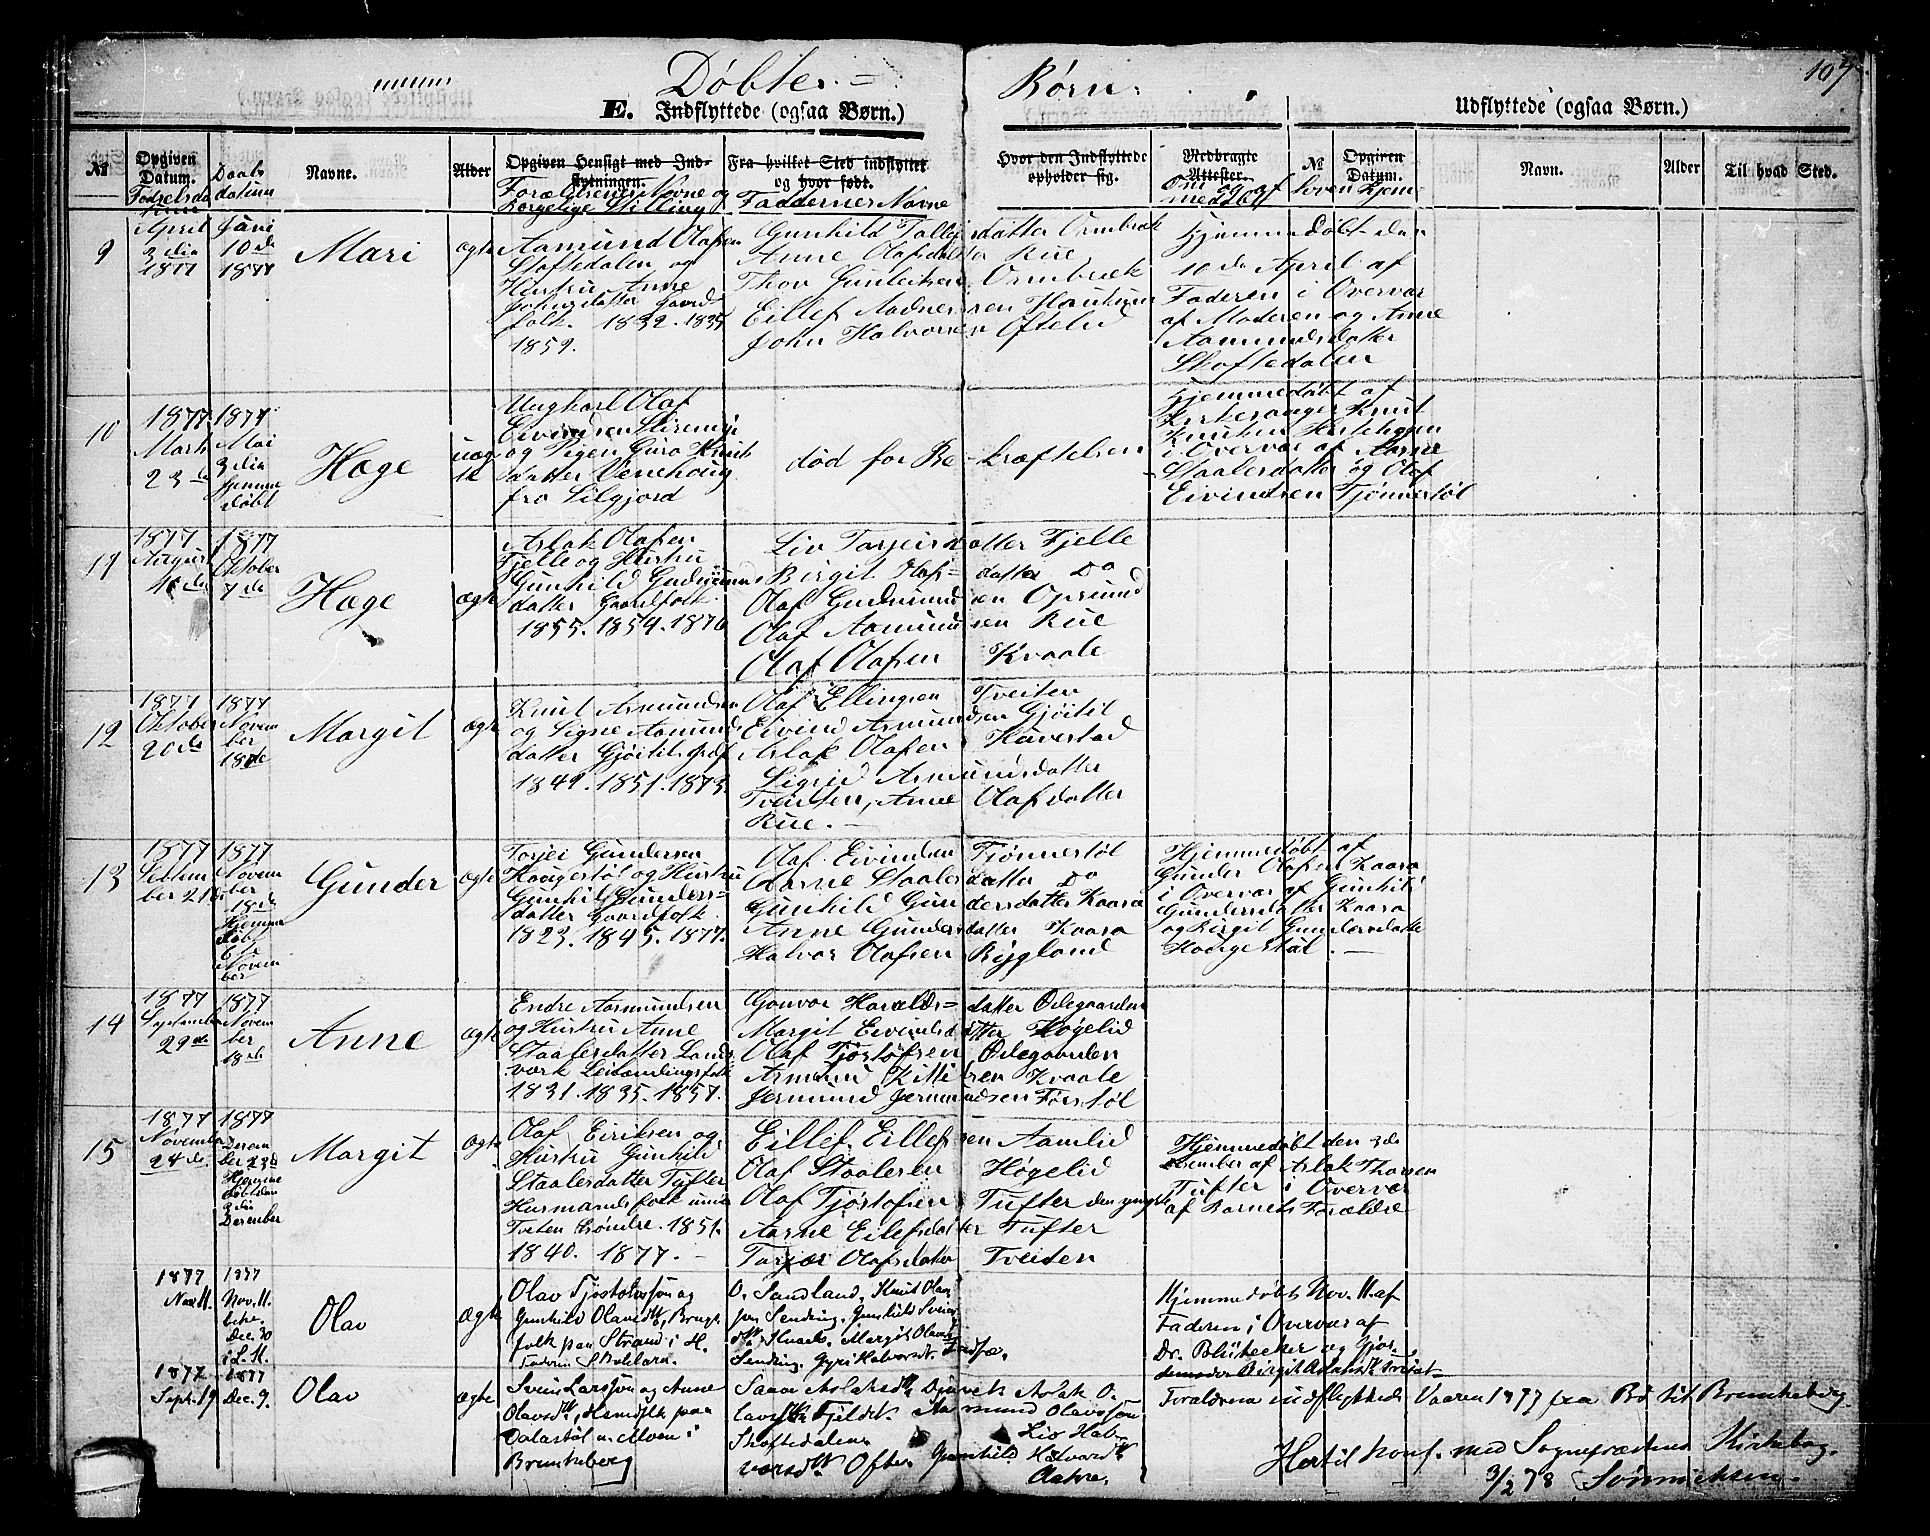 Døbte = Børn.
109
E. Indflyttede (ogsaa Børn.)
Udflyttede (ogsaa Børn.)
№
Opgiven Datum.
Fødselsda
Daabs datum
Navne.
Alder
Opgiven Hensigt med Indflytningen.
Forældrenes Navne og
Borgelige Stilling
Fra hvilket Sted indflyttet og hvor født.
Faddernes Navne
Hvor den Indflyttede opholder sig.
Medbragte Attester.
Om og af
hvem hjemmedøbt
№
Opgiven Datum.
Navn.
Alder
Til hvad Sted.
9
April
3die
1877
Juni
10de
1877
Mari
ægte
Aamund Olafsen
Skaftedalen og
Hustru Anne
Johnsdatter Gaard-
folk. 1832. 1834
1859.
Gunhild Tallefsdatter Ormbræk
Anne Olafsdatter Rue
Thov Gunleiksen Ormbræk
Eillef Aadnessen Haukum
John Halvorsen Oftelid
Hjemmedøbt den
10de April af
Faderen i Overvær
af Moderen og Anne
Aamundsdatter
Skaftedalen
10
1877
Marts
23de
1877
Mai
3die
hjemme
døbt
Hæge
uæg
te
Ungkarl Olaf
Eivindsen
og Pigen Guro Knuts
datter Vannehoug
fra Silgjord
død før Be-kræftelsen
Hjemmedøbt af
Kirkesanger Knut
Knutsen Kirkehaugen
i Overvær af Aasne
Staalesdatter og Olaf
Eivindsen Tjønnestøl
11
1877
August
1877
Oktober
7de
Hæge
ægte
Aslak Olafsen
Fjelle og Hustru
Gunhild Gudmunds
datter Gaardfolk.
1855. 1854. 1876
Liv Torjeisdatter Fjelle
Birgit Olafs=datter Do
Olaf Gudmundsen Opsund
Olaf Aamundsen Rue
Olaf Olafsen Kvaale
12
1877
Oktober
20de
1877
Novem
ber
18de
Margit
ægte
Knut Asmundsen
og Signe Aamunds
datter Gjøitil Grdf
1849. 1851. 1873.
Olaf Ellingsen Tveiten
Eivind Asmundsen Gjøitil
Aslak Olafsen Kavestad
Sigrid Asmundsdatter
Tveiten, Anne Olafsdatter
Rue. —
13
1877
Septem
ber 21de
1877
Novem
ber
18de
Hjemme
døbt
6te
Novem
ber
Gunder
ægte
Torjei Gundersen
Haugestøl og Hustru
Gunhild Gunders=
datter Gaardfolk.
1823. 1845. 1877.
Olaf Eivindsen Tjønnestøl
Aasne Staalesdatter Do
Gunhild Gundersdatter Kaasa
Anne Gundersdatter Kaasa
Halvor Olafsen Bygland
Hjemmedøbt af
Gunder Olafsen Kaasa
i Overvær af Gunhild
Gundersdatter Kaasa
og Birgit Gundersdatte
Haugestøl. —
14
1877
September
29de
1877
Novem
ber
18de
Anne
ægte
Endre Aasmundsen
og Hustru Anne
Staalesdatter Lands
værk Leilændingsfolk
1831. 1835. 1857.
Gonvor Haralds=datter Ødegaarden
Margit Eivindsdatter Høgelid
Olaf Tjøstofsen Ødegaarden
Asmund Kittilsen Kvaale
Jermund Jermundsen Førstøl
15
1877
November
24de.
1877
Decem
ber 23de
Hjemme
døbt den
3die
December
Margit
ægte
Olaf Eiriksen og
Hustru Gunhild
Staalesdatter Tufter
Husmandsfolk under
Tveten 1851.
1840. 1877. —
Eillef Eillefsen Aamlid
Olaf Staalesen Høgelid
Olaf Tjøstofsen Tufter den yngste
Aasne Eilefsdatter Tufter
Torjær Olafsdatter Tveiten
Hjemmedøbt den 3de
December af Aslak Thorsen
Tufter i Overvær
af Barnets Forældre
1877
Nov. 11.
1877
Nov. 11.
Dec. 30
i L. H.
Olav
ægte
Olav Tjøstolvsson og
Gunhild Olavsdtr, Brugs
folk paa Strand i H.
O. Sandland. Knut Olavs
son Sending. Gunhild Sveins
dtr. Margit Olavsd
Sending. Gyri Halvorsdtr.
Hjemmedøbt Nov. 11. af
Faderen i Overvær af
Dr. og Gjor-
demoder Birgit
1877
Sept. 19
1877
Dec. 9.
Olav
ægte
Svein Larsson og Anne
Olavsdtr, Husmfolk paa
Dalastøl u. Moen i
Brunkeberg
Aslak O.
Aasmund Olavsson
Skaftedalen. Liv Hal-
vorsdtr. Ofte. Gunhild Halvorsdtr
Forældrene indflyttede Vaaren 1877 fra Bø til Brunkeberg.
Hertil konf. med Sognepræstens Kirkebog.
3/2 78 Sønnichsen.